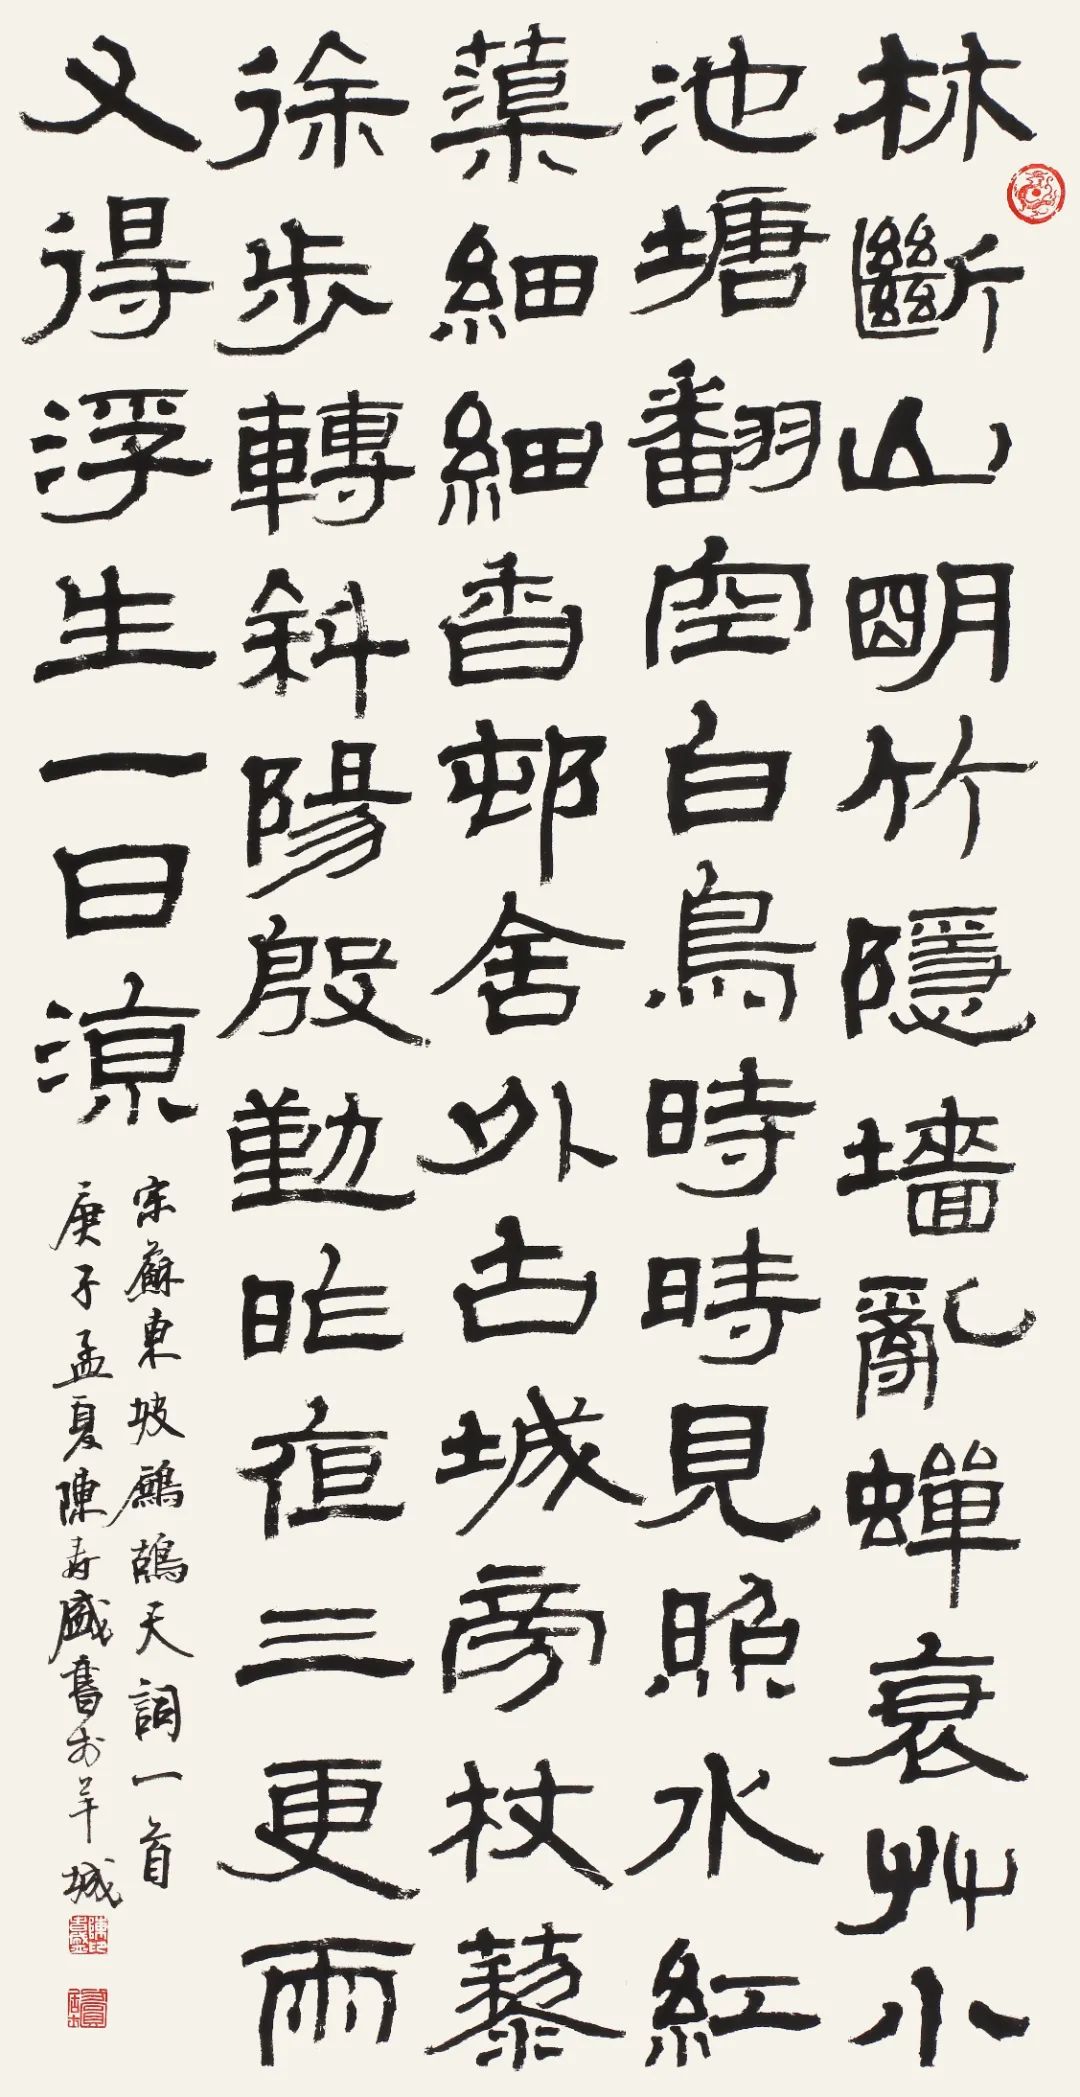 林斷山明竹隱墻亂蟬衰艸小
池塘翻空白鳥時時見照水紅
蕖細細香邨舍外古城旁杖藜
徐步轉斜陽殷勤昨夜三更雨
又得浮生一日涼
宋蘇東坡鷓鴣天詞一首
庚子孟夏陳寿盛書於羊城